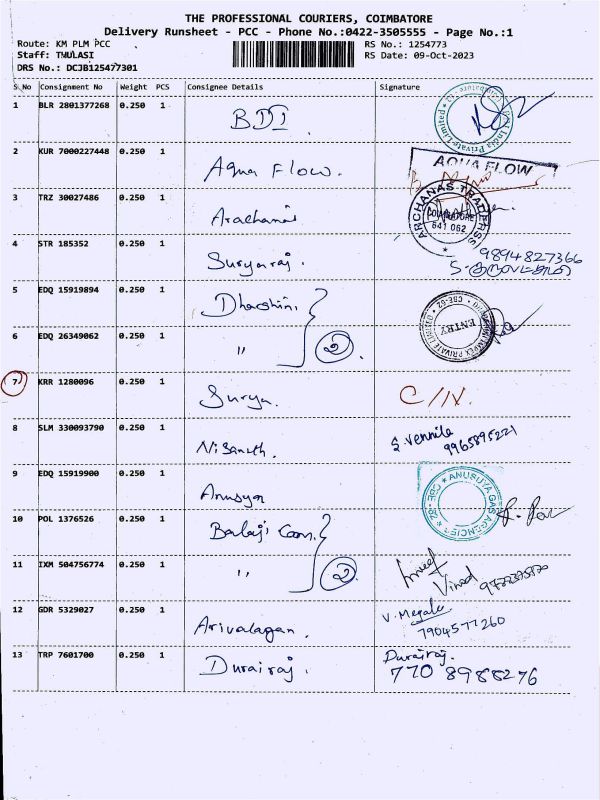 THE PROFESSIONAL COURIERS, COIMBATORE
Delivery Runsheet - PCC - Phone No.:0422-3505555 - Page No.:1
Route: KM PLM PCC RS No.: 1254773
Staff: THULASI RS Date: 09-Oct-2023
DRS No.: DCJB125477301
S.No Consignment No Weight PCS Consignee Details Signature
1 BLR 2801377268 0.250 1 BDI India Private Limited
2 KUR 7000227448 0.250 1 Aqua Flow. AQUA FLOW
3 TRZ 30027486 0.250 1 Arachanas ARCHANAS TRADERSS COIMBATORE 641 062
4 STR 185352 0.250 1 Suryaraj. 9894827366
5 EDQ 15919894 0.250 1 Dharshini PRIVATE LIMITED CBE-62 ENTRY
6 EDQ 26349062 0.250 1 " 2
7 KRR 1280096 0.250 1 Surya. C/N.
8 SLM 330093790 0.250 1 Nisanth. S. Vennila
9965895221
9 EDQ 15919900 0.250 1 Anusya ANUSUYA GAS AGENCIES
10 POL 1376526 0.250 1 Balaji Com.
11 IXM 504756774 0.250 1 " 2 Vinod
12 GDR 5329027 0.250 1 Arivalagan. V. Megala
7904577260
13 TRP 7601700 0.250 1 Durairaj. Durairaj.
770 8988276